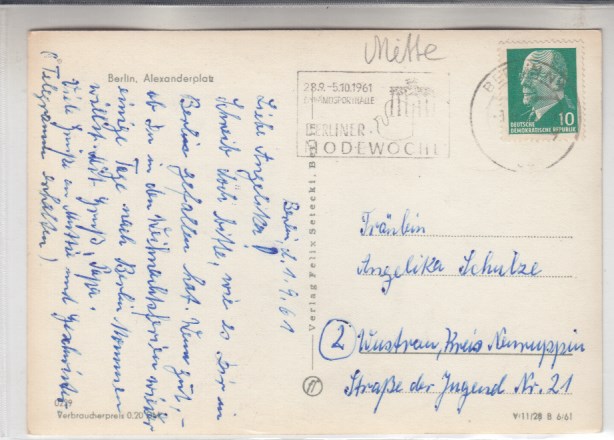 Mitte
Berlin, Alexanderplatz
28.9. - 5.10.1961
DYNAMOSPORTHALLE
BERLINER
MODEWOCHE
BERLIN N
10
DEUTSCHE
DEMOKRATISCHE REPUBLIK
Berlin, d. 1.9.61
Liebe Angelika!
Schreib doch bitte, wie es Dir in
Berlin gefallen hat. Wenn gut, -
ob Du in den Weihnachtsferien wieder
einige Tage nach Berlin kommen
willst. Mit Gruß, Papa.
Viele Grüße an Mutti und Geschwister
(Telegramm erhalten)
Verlag Felix Setecki, Berlin
Fräulein
Angelika Schulze
(2) Wustrau, Kreis Neuruppin
Straße der Jugend Nr. 21
Verbraucherpreis 0.20
V/11/28 B 6/61